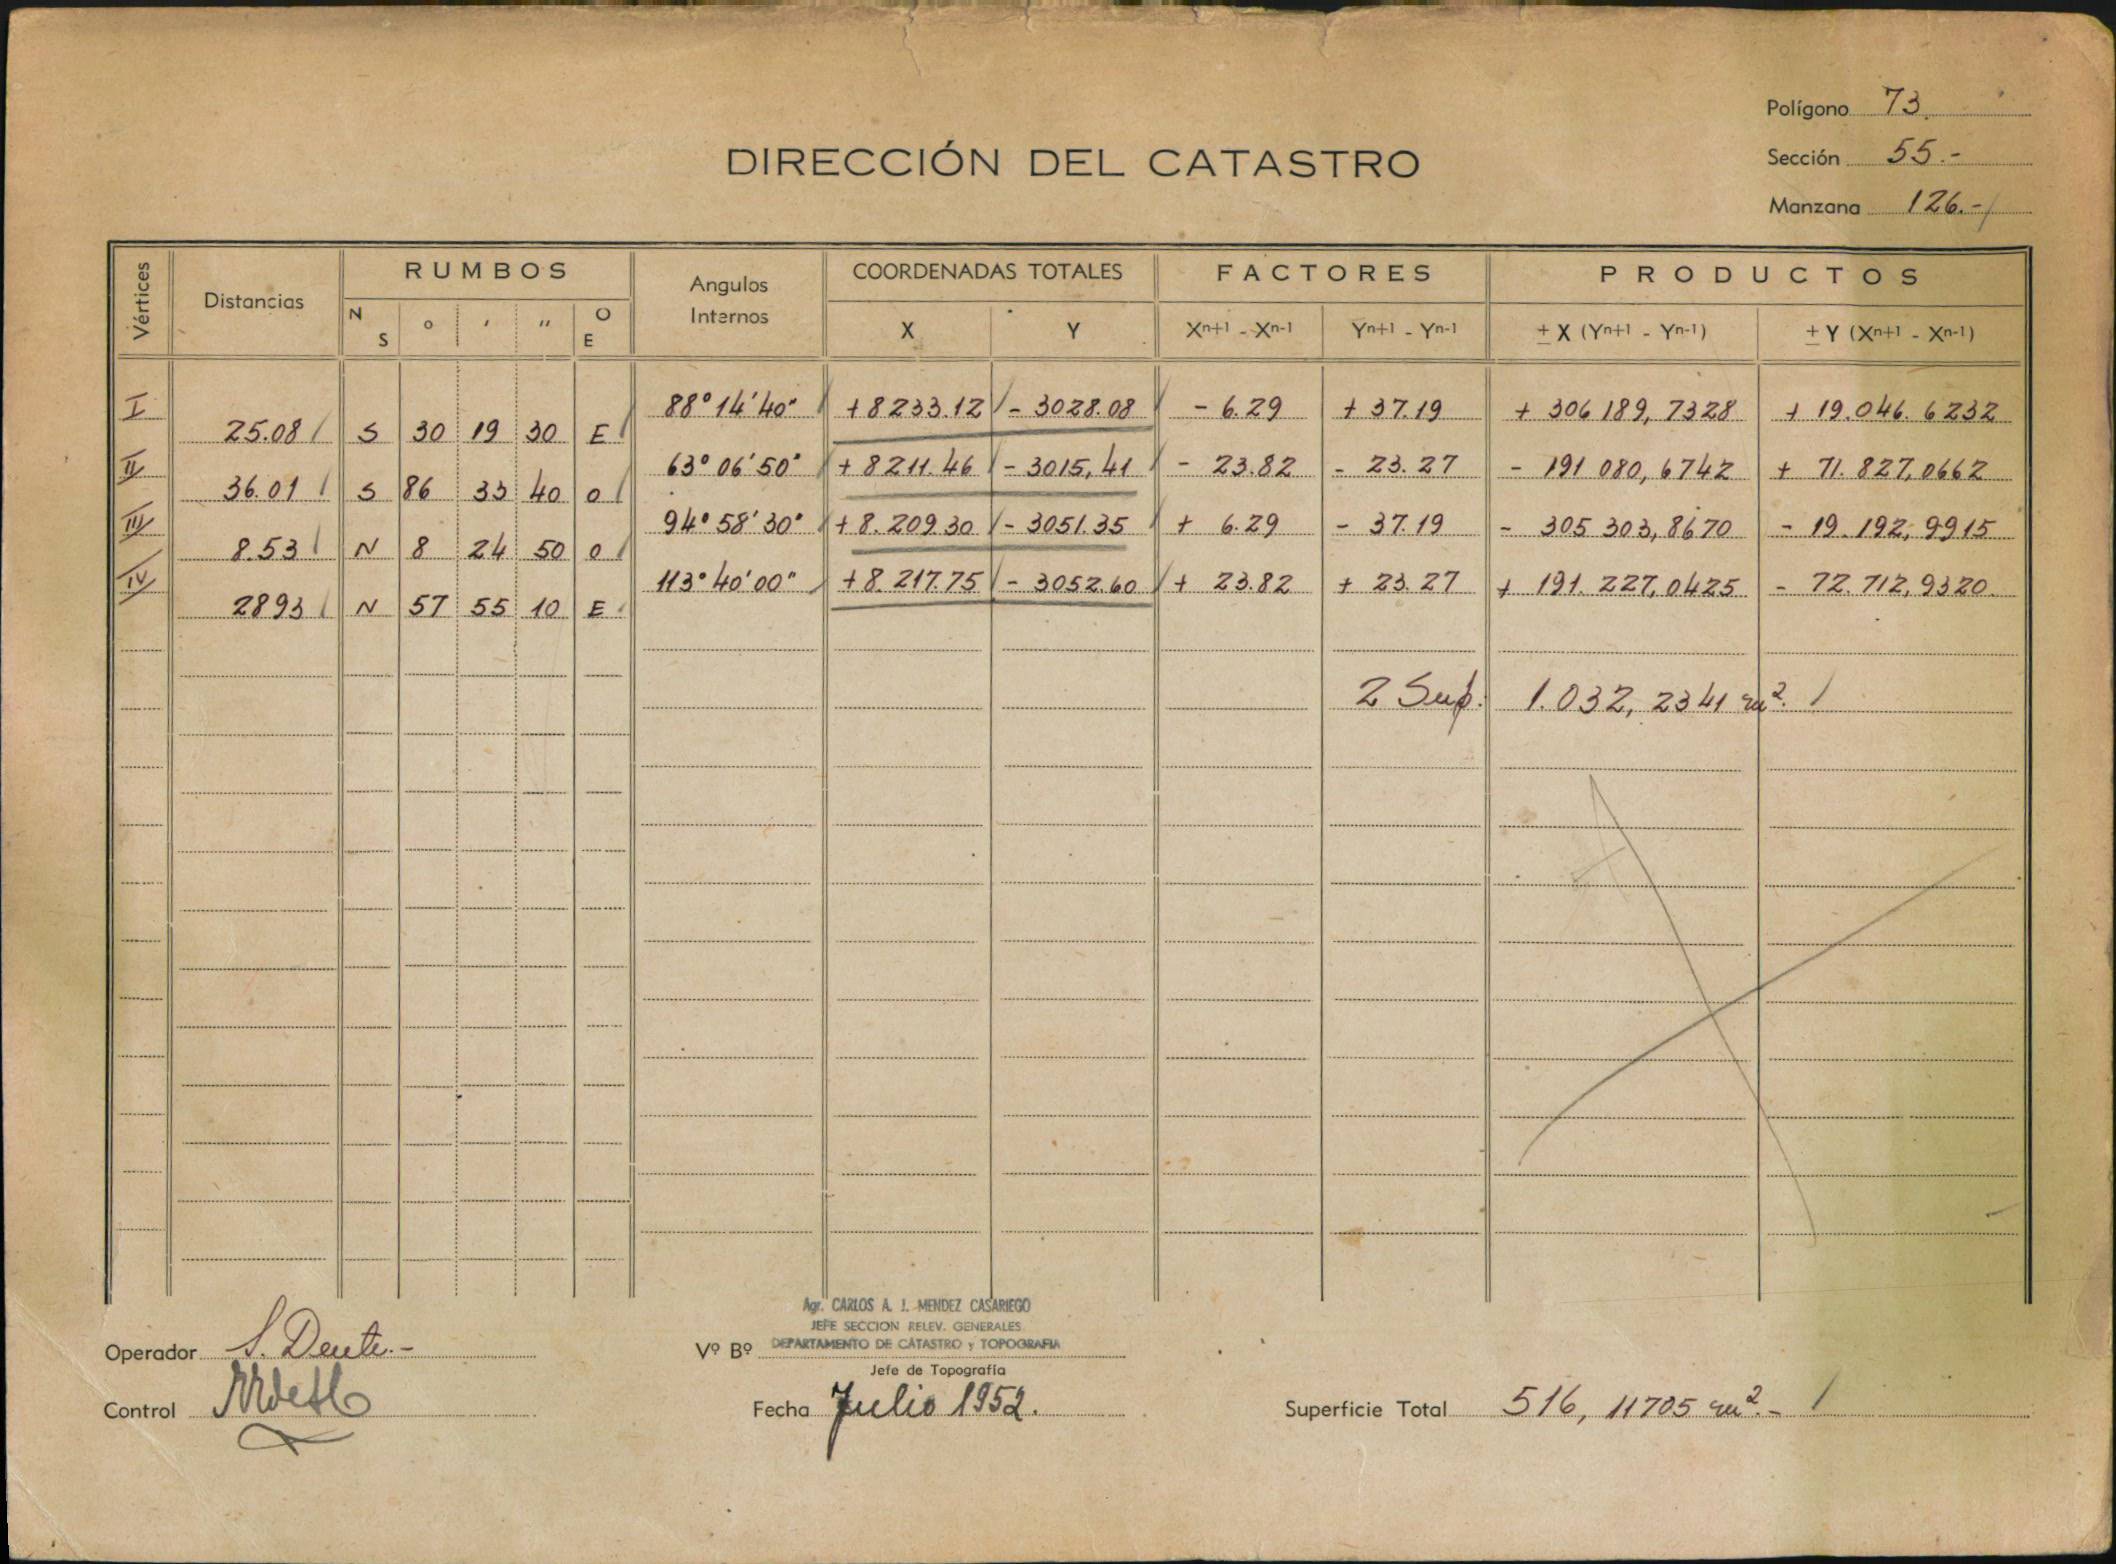 Polígono 73.
DIRECCIÓN DEL CATASTRO
Sección 55.-
Manzana 126.-
Vértices Distancias RUMBOS Angulos Internos COORDENADAS TOTALES FACTORES PRODUCTOS
N S o ' '' O E X Y Xn+1 - Xn-1 Yn+1 - Yn-1 ± X (Yn+1 - Yn-1) ± Y (Xn+1 - Xn-1)
I 88° 14' 40" +8233.12 - 3028.08 - 6.29 + 37.19 + 306 189, 7328 + 19.046. 6232
25.08 S 30 19 30 E
II 63° 06' 50" + 8211.46 - 3015,41 - 23.82 - 23.27 - 191 080, 6742 + 71.827,0662
36.01 S 86 33 40 O
III 94° 58' 30" +8.209.30 - 3051.35 + 6.29 - 37.19 - 305 303, 8670 - 19.192, 9915
8.53 N 8 24 50 O
IV 113° 40' 00" +8.217.75 - 3052.60 + 23.82 + 23.27 + 191.227,0425 - 72.712, 9320
2893 N 57 55 10 E
2 Sup. 1.032, 2341 m².
Agr. CARLOS A. J. MENDEZ CASARIEGO
JEFE SECCION RELEV. GENERALES
Operador S. Dente.- Vº Bº DEPARTAMENTO DE CATASTRO y TOPOGRAFIA
Jefe de Topografía
Control Fecha Julio 1952. Superficie Total 516, 11705 m².-